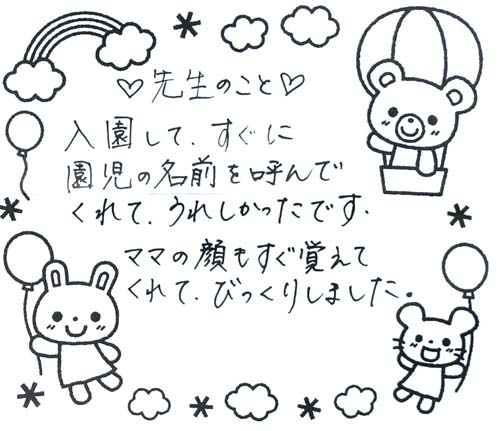 ♡先生のこと♡
入園して、すぐに
園児の名前を呼んで
くれて、うれしかったです。
ママの顔もすぐ覚えて
くれて、びっくりしました。